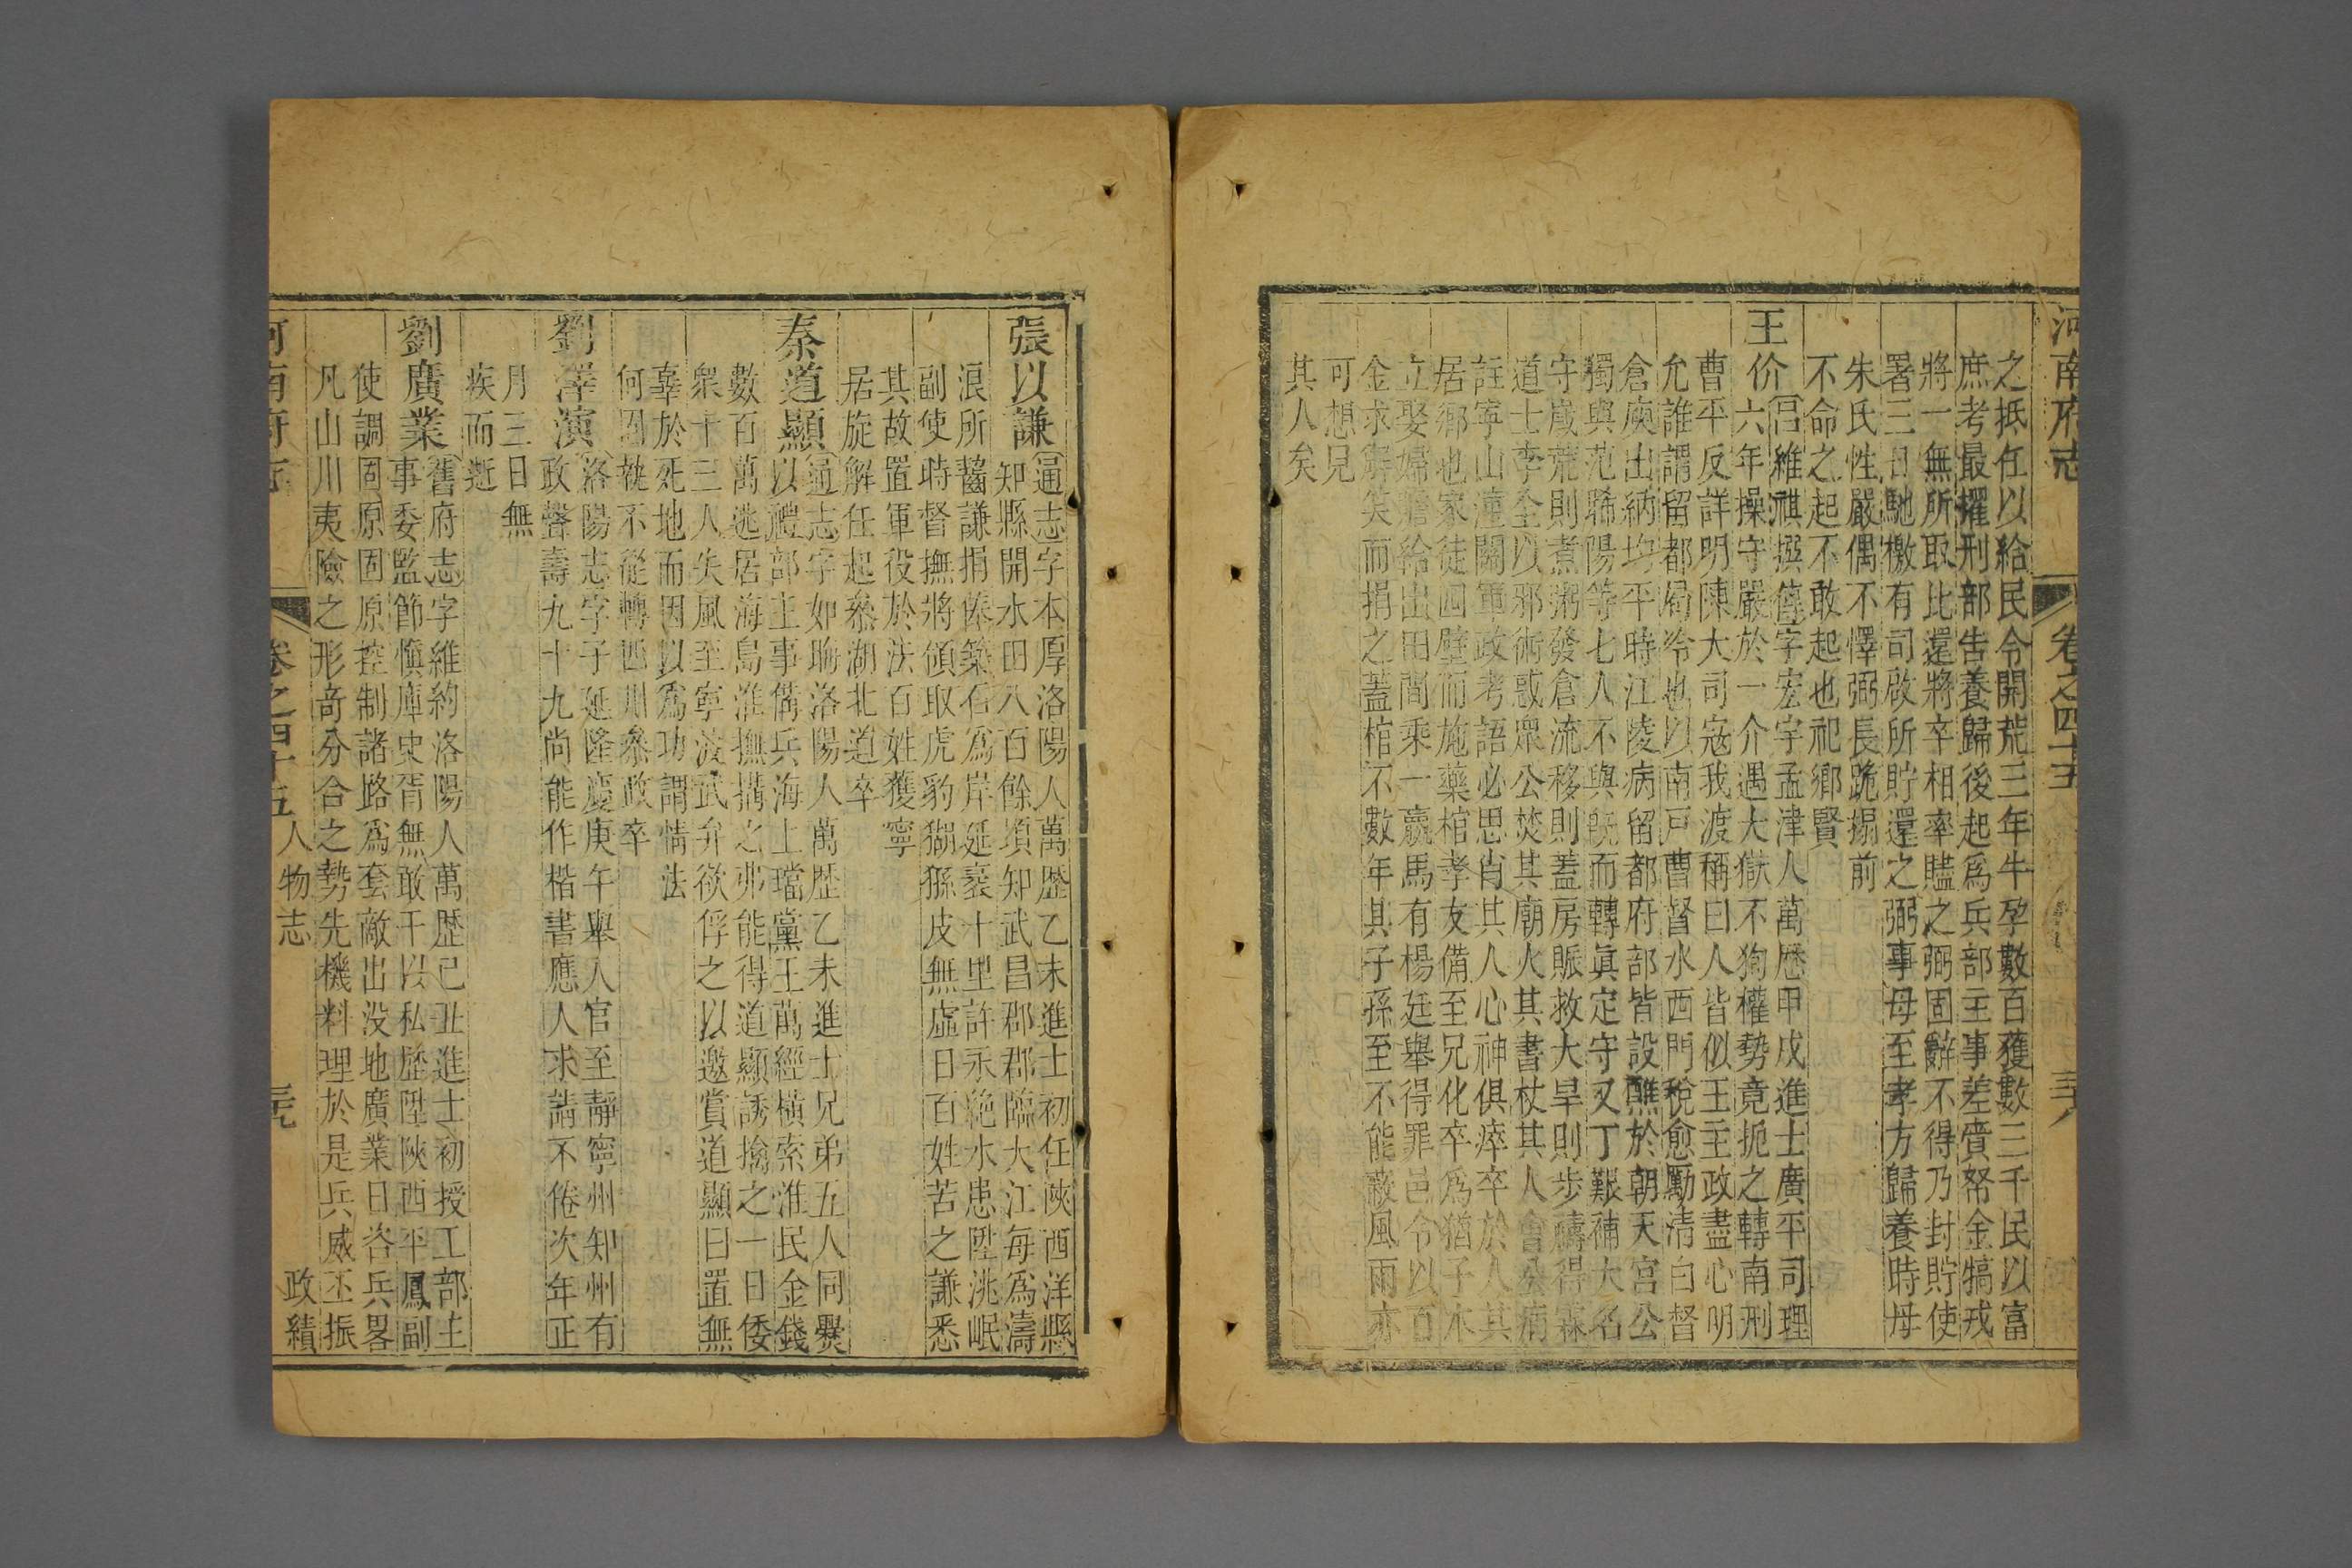 河南府志 卷之四十五
之抵任以給民令開荒三年牛孕數百獲數三千民以富
庶考最擢刑部告養歸後起爲兵部主事差賫帑金犒戎
將一無所取比還將卒相率贐之弼固辭不得乃封貯使
署三日馳檄有司啟所貯還之弼事母至孝方歸養時母
朱氏性嚴偶不懌弼長跪搨前
不命之起不敢起也祀鄉賢
王价呂維祺撰傳字宏宇孟津人萬歷甲戌進士廣平司理
六年操守嚴於一介遇大獄不狥權勢竟扼之轉南刑
曹平反詳明陳大司寇我渡稱曰人皆似王主政盡心明
允誰謂留都局冷也以南戸曹督水西門稅愈勵清白督
倉庾出納均平時江陵病留都府部皆設醮於朝天宮公
獨與范晞陽等七人不與旣而轉眞定守又丁艱補大名
守歲荒則煮粥發倉流移則蓋房賑救大旱則步禱得霖
道士李全以邪術惑眾公焚其廟火其書杖其人會公病
註寧山潼關軍政考語必思肖其人心神俱瘁卒於八其
居鄉也家徒四壁而施藥棺孝友備至兄化卒爲猶子木
立娶婦膽給出田間乘一羸馬有楊廷舉得罪邑令以百
金求解笑而捐之蓋棺不數年其子孫至不能蔽風雨亦
可想見
其人矣
張以謙通志字本厚洛陽人萬歷乙未進士初任陝西洋縣
知縣開水田八百餘頃知武昌郡郡臨大江每爲濤
浪所齧謙捐俸築石爲岸延袤十里許永絶水患陞洮岷
副使時督撫將領取虎豹猢猻皮無虛日百姓苦之謙悉
其故置軍役於法百姓獲寧
居旋解任起叅湖北道卒
秦道顯通志字如晦洛陽人萬歷乙未進士兄弟五人同爨
以禮部主事備兵海上璫黨王萬經横索淮民金錢
數百萬逃居海島淮撫搆之弗能得道顯誘擒之一日倭
眾十三人失風至寧波武弁欲俘之以邀賞道顯曰置無
辜於死地而因以爲功謂情法
何固執不從轉四川叅政卒
劉澤演洛陽志字子延隆慶庚午舉人官至靜寧州知州有
政聲壽九十九尚能作楷書應人求請不倦次年正
月三日無
疾而逝
劉廣業舊府志字維約洛陽人萬歷己丑進士初授工部主
事委監節愼庫史胥無敢干以私歴陞陝西平鳳副
使調固原固原控制諸路爲套敵出没地廣業日咨兵畧
凡山川夷險之形竒分合之勢先機料理於是兵威丕振
河南府志 卷之四十五 人物志 政績